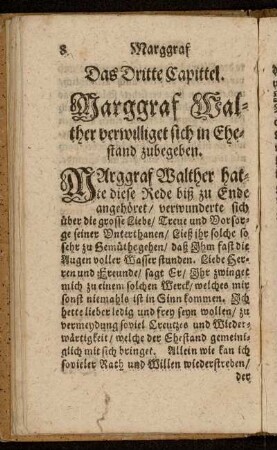 8 Marggraf
Das Dritte Capittel.
Marggraf Wal-
ther verwilliget sich in Ehe-
stand zubegeben.
MArggraf Walther hat-
te diese Rede biß zu Ende
angehöret/ verwunderte sich
über die grosse Liebe/ Treue und Vorsor-
ge seiner Unterthanen/ Ließ ihr solche so
sehr zu Gemüthegehen/ daß Jhm fast die
Augen voller Wasser stunden. Liebe Her-
ren und Freunde/ sagt Er/ Jhr zwinget
mich zu einem solchen Werck/ welches mir
sonst niemahls ist in Sinn kommen. Jch
hette lieber ledig und frey seyn wollen/ zu
vermeydung soviel Creutzes und Wieder-
wärtigkeit/ welche der Ehestand gemeinig-
lich mit sich bringet. Allein wie kan ich
sovieler Rath und Willen wiederstreben/
der